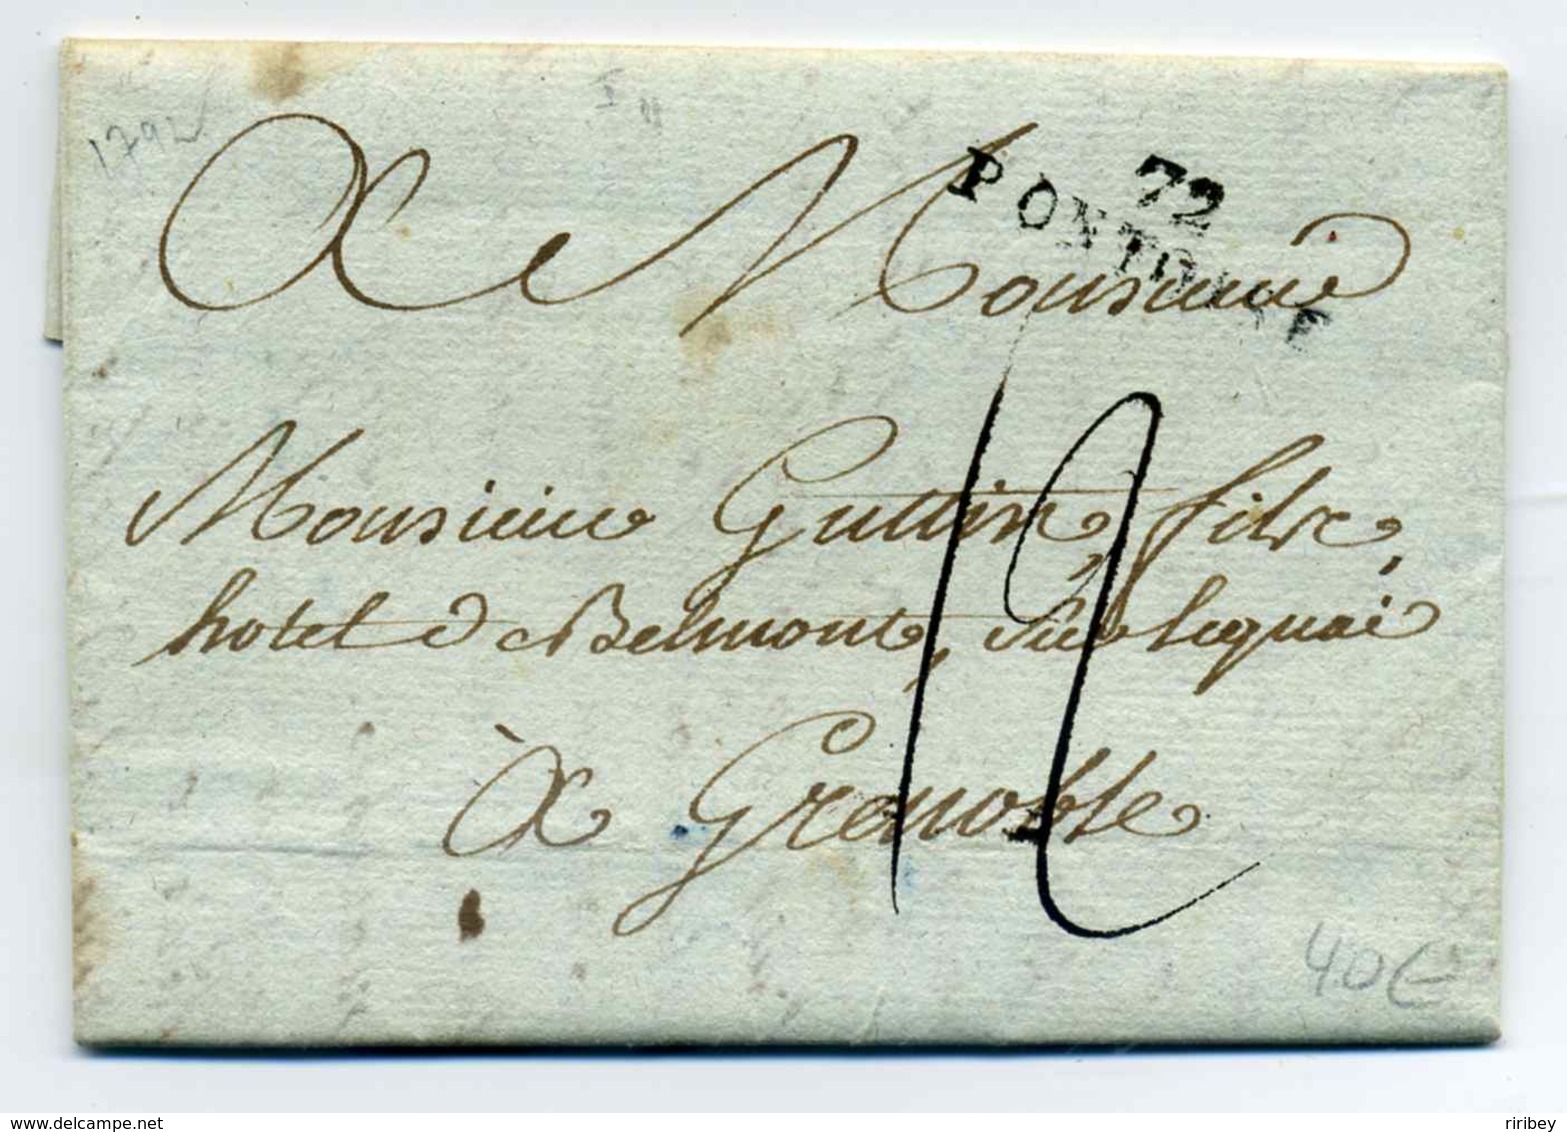 1792
A Monsieur
72
PONTOISE
Monsieur Guttin, fils,
hotel de Belmont, sur le quai
12
à Grenoble
40€
www.delcampe.net
ririбey